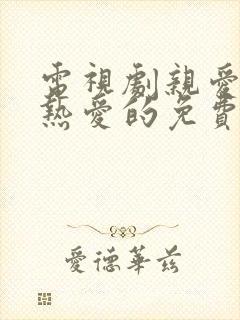 電視劇親愛
熱愛的免費
愛德華茲